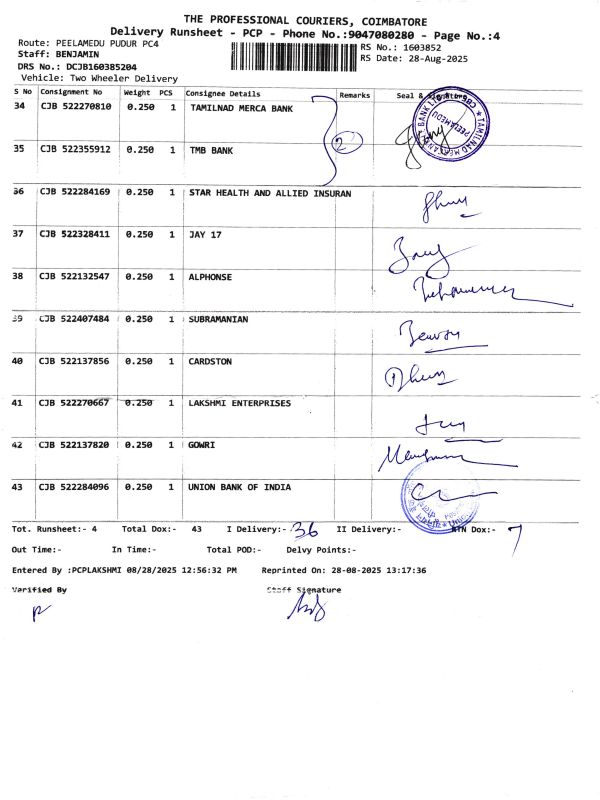 THE PROFESSIONAL COURIERS, COIMBATORE
Delivery Runsheet - PCP - Phone No.:9047080280 - Page No.:4
Route: PEELAMEDU PUDUR PC4
RS No.: 1603852
Staff: BENJAMIN
RS Date: 28-Aug-2025
DRS No.: DCJB160385204
Vehicle: Two Wheeler Delivery
S No Consignment No Weight PCS Consignee Details Remarks Seal & Signature
34 CJB 522270810 0.250 1 TAMILNAD MERCA BANK
2
35 CJB 522355912 0.250 1 TMB BANK
36 CJB 522284169 0.250 1 STAR HEALTH AND ALLIED INSURAN
37 CJB 522328411 0.250 1 JAY 17
38 CJB 522132547 0.250 1 ALPHONSE
39 CJB 522407484 0.250 1 SUBRAMANIAN
40 CJB 522137856 0.250 1 CARDSTON
41 CJB 522270667 0.250 1 LAKSHMI ENTERPRISES
42 CJB 522137820 0.250 1 GOWRI
43 CJB 522284096 0.250 1 UNION BANK OF INDIA
Tot. Runsheet:- 4 Total Dox:- 43 I Delivery:- 36 II Delivery:- RTN Dox:- 7
Out Time:- In Time:- Total POD:- Delvy Points:-
Entered By :PCPLAKSHMI 08/28/2025 12:56:32 PM Reprinted On: 28-08-2025 13:17:36
Verified By Staff Signature